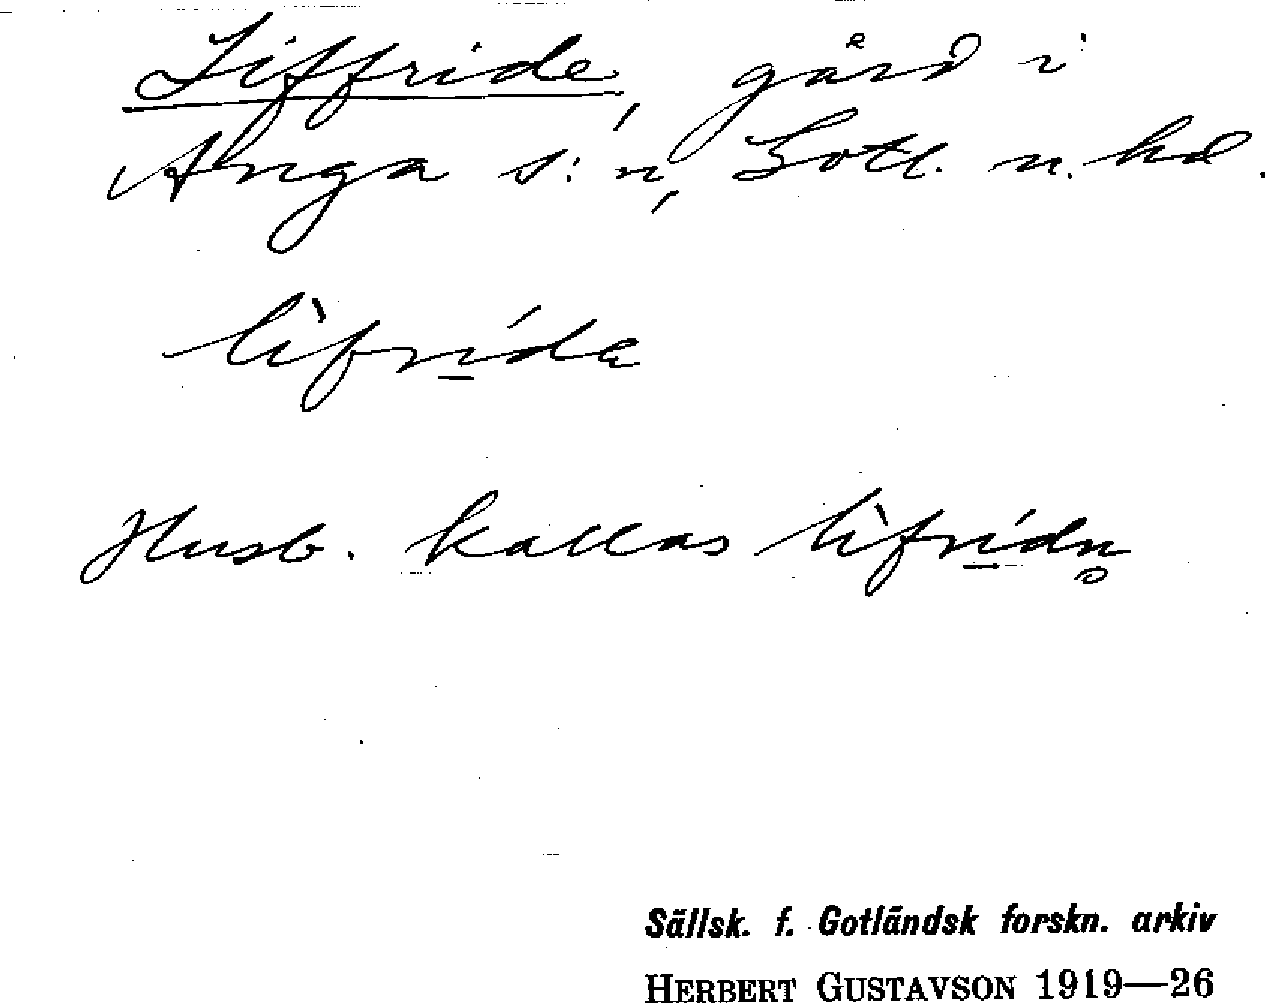 Liffride, gård i
Anga s:n, Gotl. n. hd.
lìfrída
Husb. kallas lìfrídn̥
Sällsk. f. Gotländsk forskn. arkiv
HERBERT GUSTAVSON 1919—26